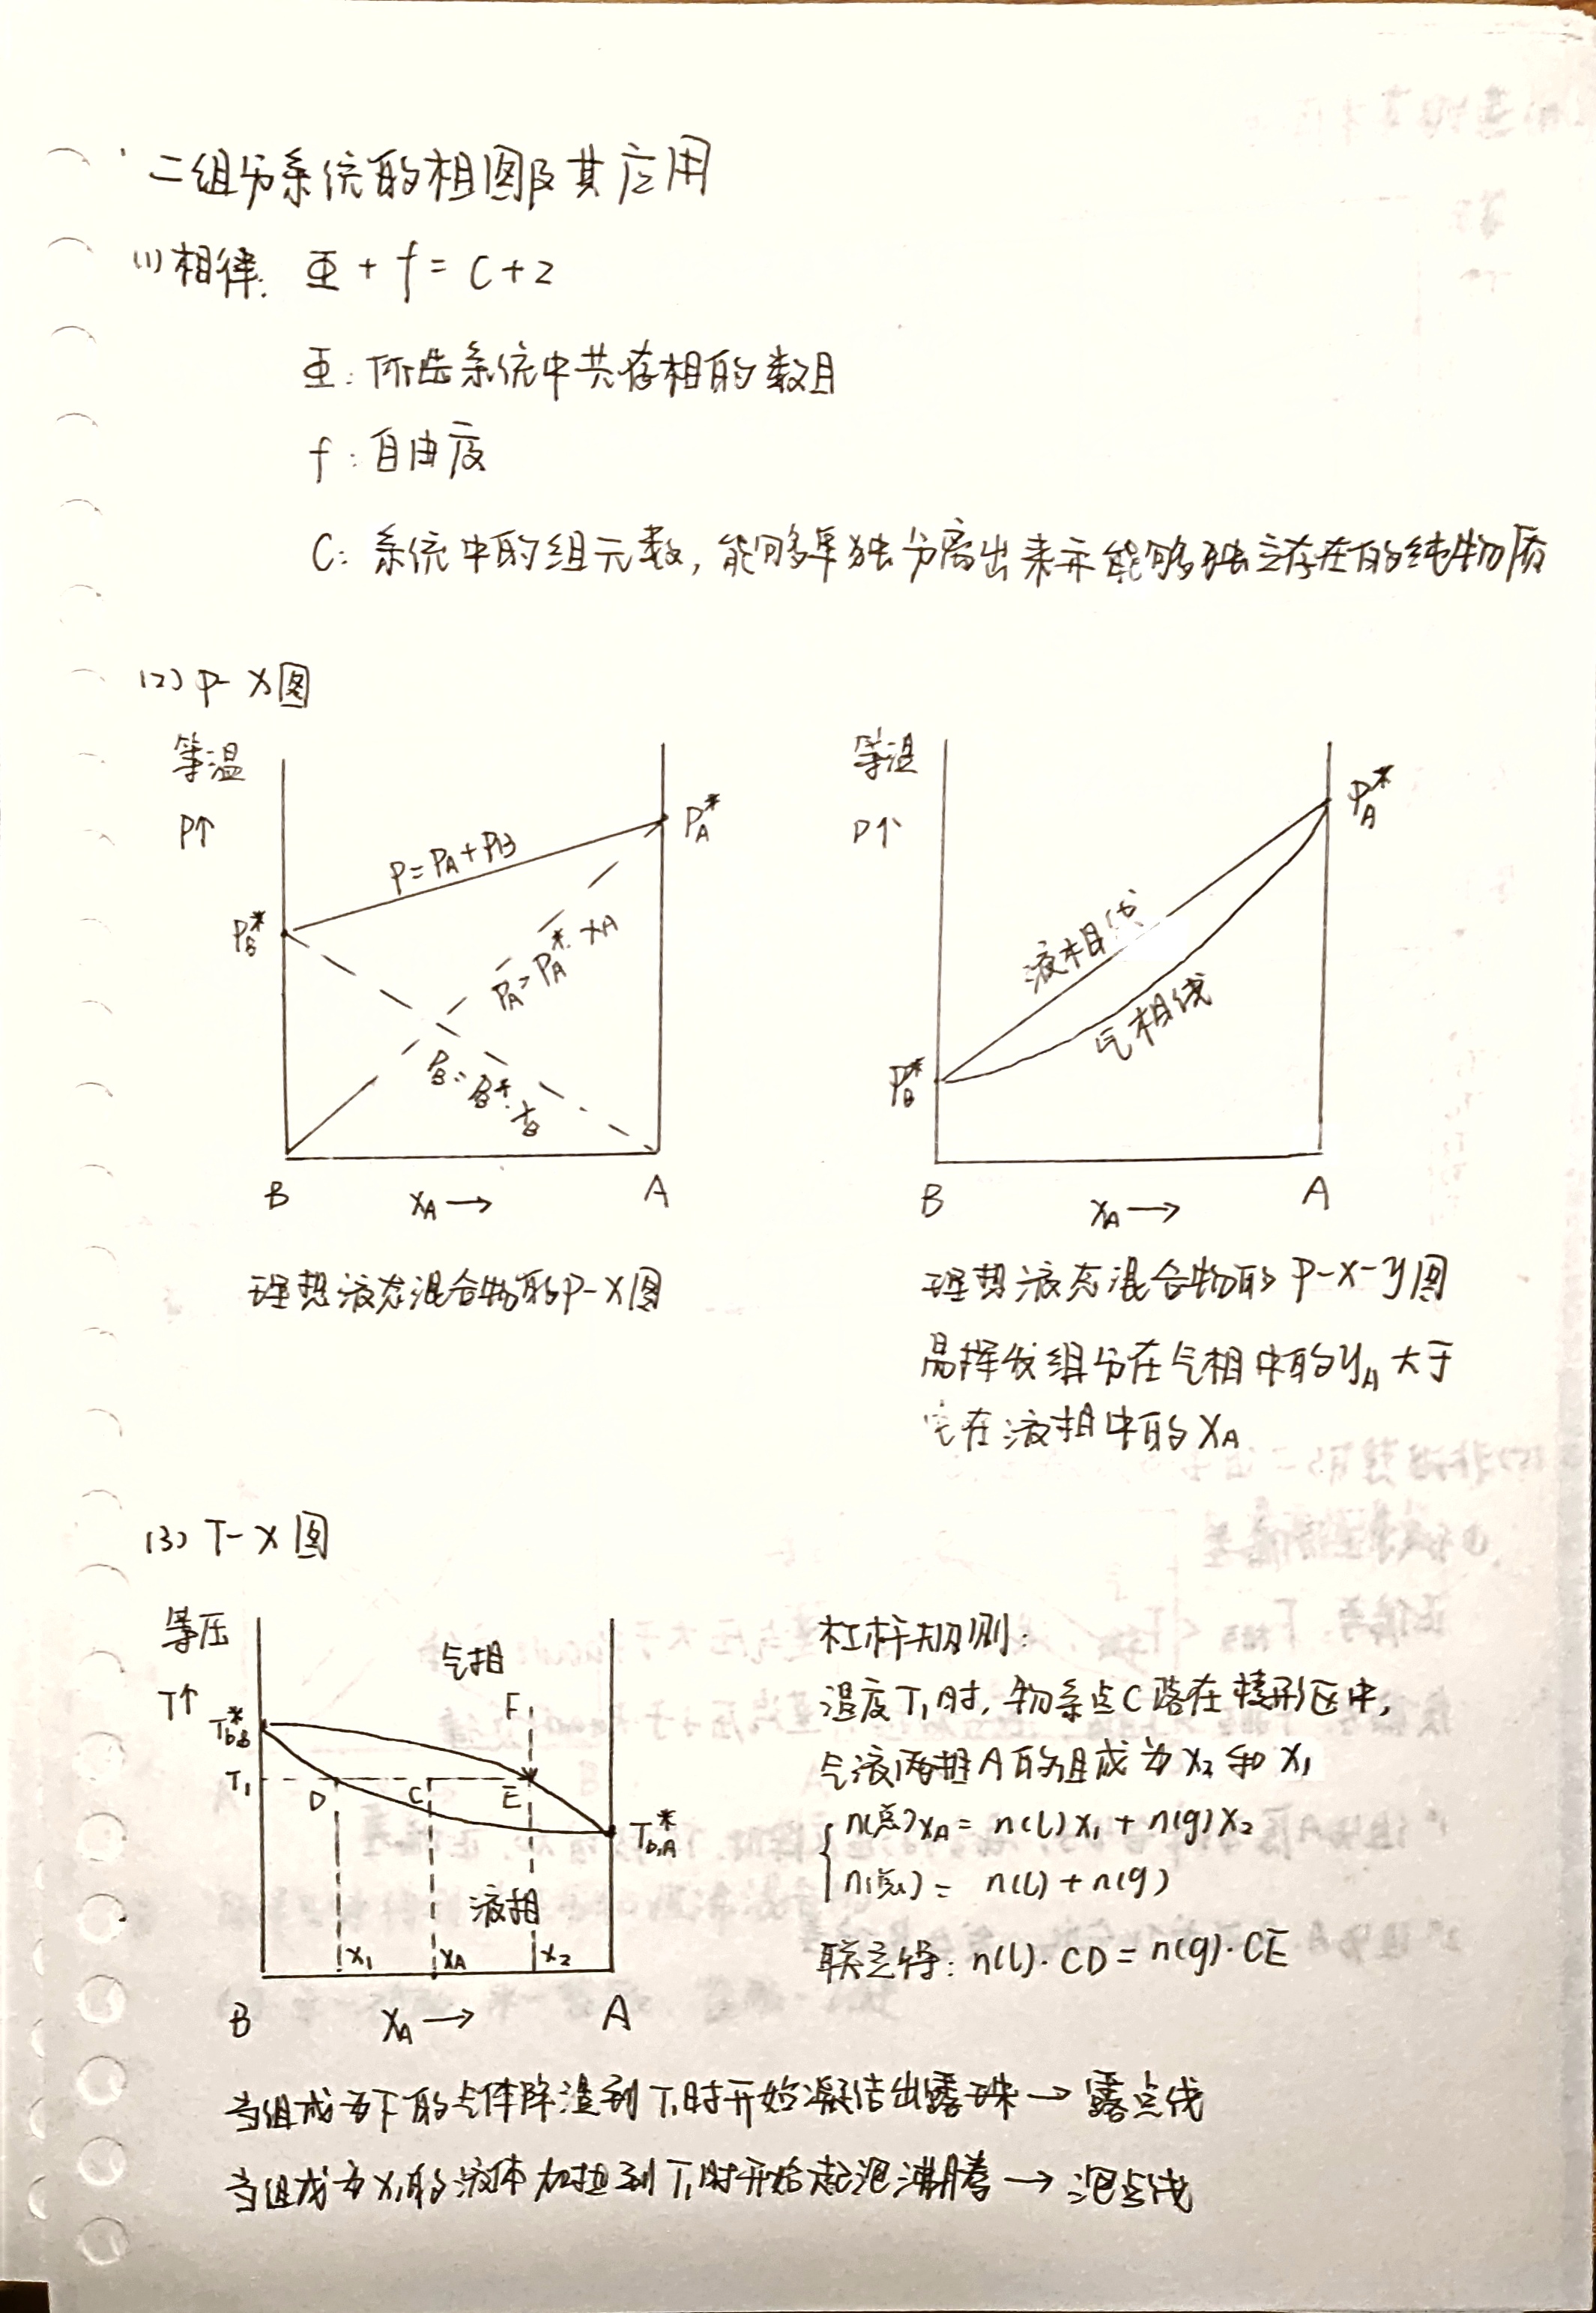 二组分系统的相图及其应用
(1)相律: Φ + f = C + 2
Φ: 所选系统中共存相的数目
f: 自由度
C: 系统中的组元数, 能够单独分离出来亦能够独立存在的纯物质
(2) P-X图
等温
P↑
P=PA+PB
PA*
PB*
PA=PA*·XA
PB=PB*·
B
XA→
A
理想液态混合物的P-X图
等温
P↑
PA*
液相线
气相线
PB*
B
XA→
A
理想液态混合物的P-X-y图
易挥发组分在气相中的yA大于
它在液相中的XA
(3) T-X图
等压
T↑
气相
F
Tb,B*
T1
D
C
E
Tb,A*
液相
X1
XA
X2
B
XA→
A
杠杆规则:
温度T1时, 物系点C落在梭形区中,
气液两相A的组成为X2和X1
n(总)XA = n(l)X1 + n(g)X2
n(总) = n(l) + n(g)
联立得: n(l)·CD = n(g)·CE
当组成为F的气体降温到T1时开始凝结出露珠→露点线
当组成为X1的液体加热到T1时开始起泡沸腾→泡点线